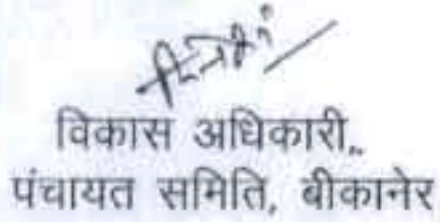 विकास अधिकारी,
पंचायत समिति, बीकानेर